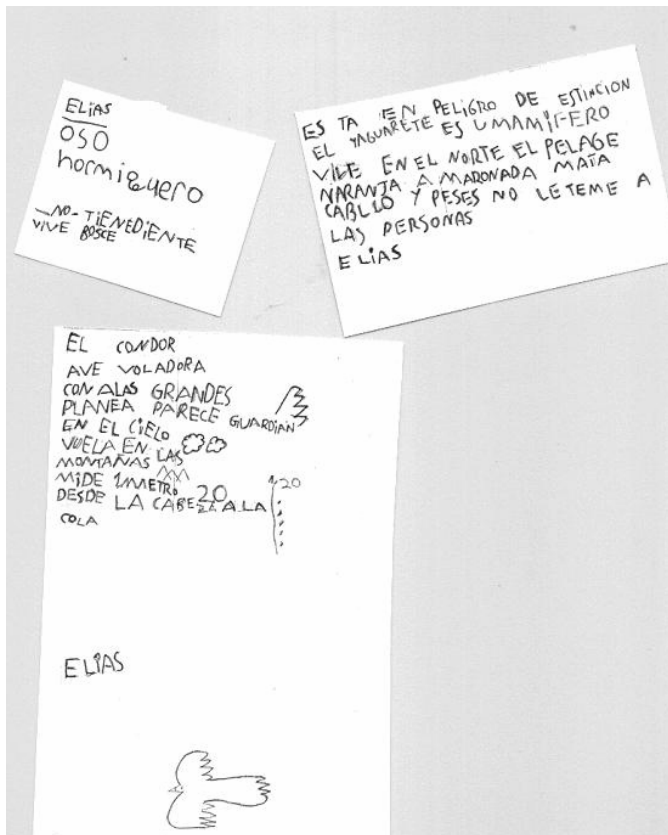 ELiAS
OSO
hormiguero
_NO-TIENEDiENTE
VIVE BOSCE
ES TA EN PELIGRO DE ESTINCION
EL YAGUARETE ES UMAMIFERO
VIVE EN EL NORTE EL PELAGE
NARANJA AMARONADA MATA
CABLLO Y PESES NO LE TEME A
LAS PERSONAS
ELIAS
EL CONDOR
AVE VOLADORA
CON ALAS GRANDES
PLANEA PARECE GUARDIAN
EN EL CIELO
VUELA EN LAS
MONTAÑAS
MiDE 1 METRO 20
DESDE LA CABEZA A LA
COLA
1,20
ELIAS